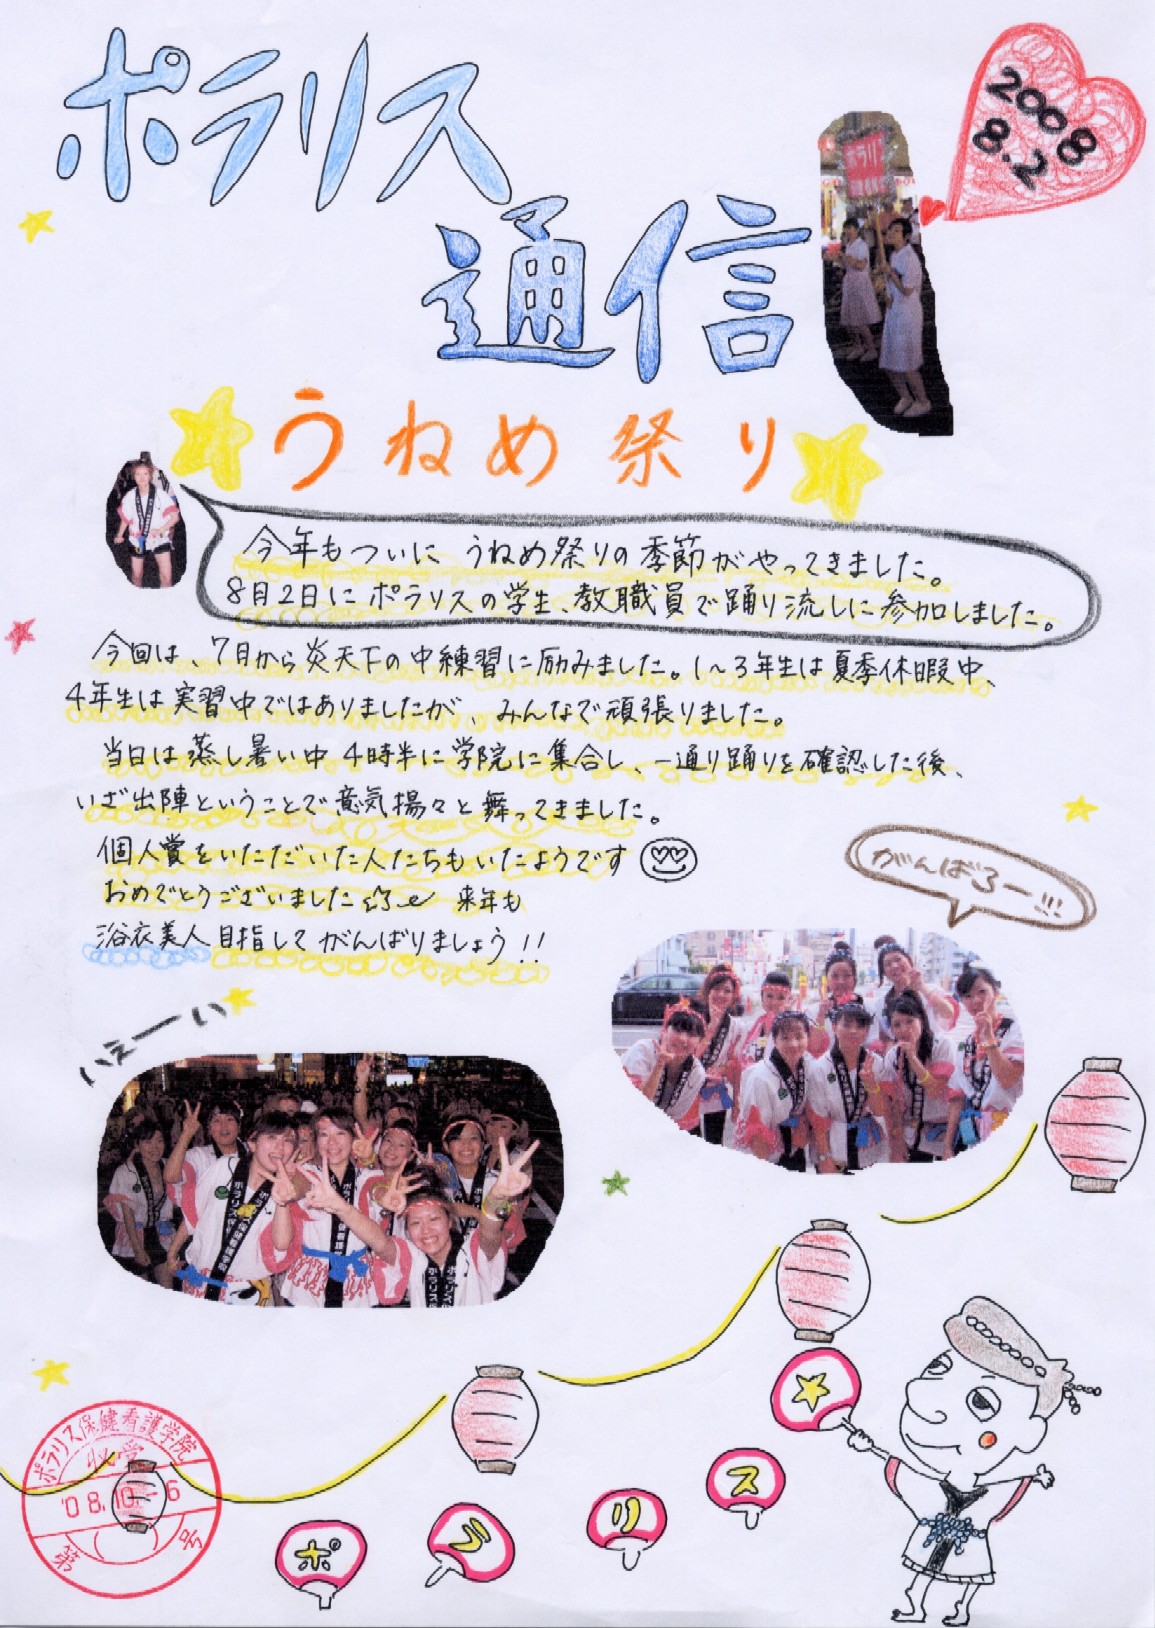 ポラリス
通信
2008
8.2
うねめ祭り
今年もついに うねめ祭りの季節がやってきました。
8月2日にポラリスの学生、教職員で踊り流しに参加しました。
今回は、7月から炎天下の中練習に励みました。1~3年生は夏季休暇中、
4年生は実習中ではありましたが、みんなで頑張りました。
当日は蒸し暑い中 4時半に学院に集合し、一通り踊りを確認した後、
いざ出陣ということで意気揚々と舞ってきました。
個人賞をいただいた人たちもいたようです
おめでとうございました 来年も
浴衣美人目指してがんばりましょう!!
がんばろー!!!
いえーい
ポラリス保健看護学院
収受
'08.10.-6
第 号
ポラリス